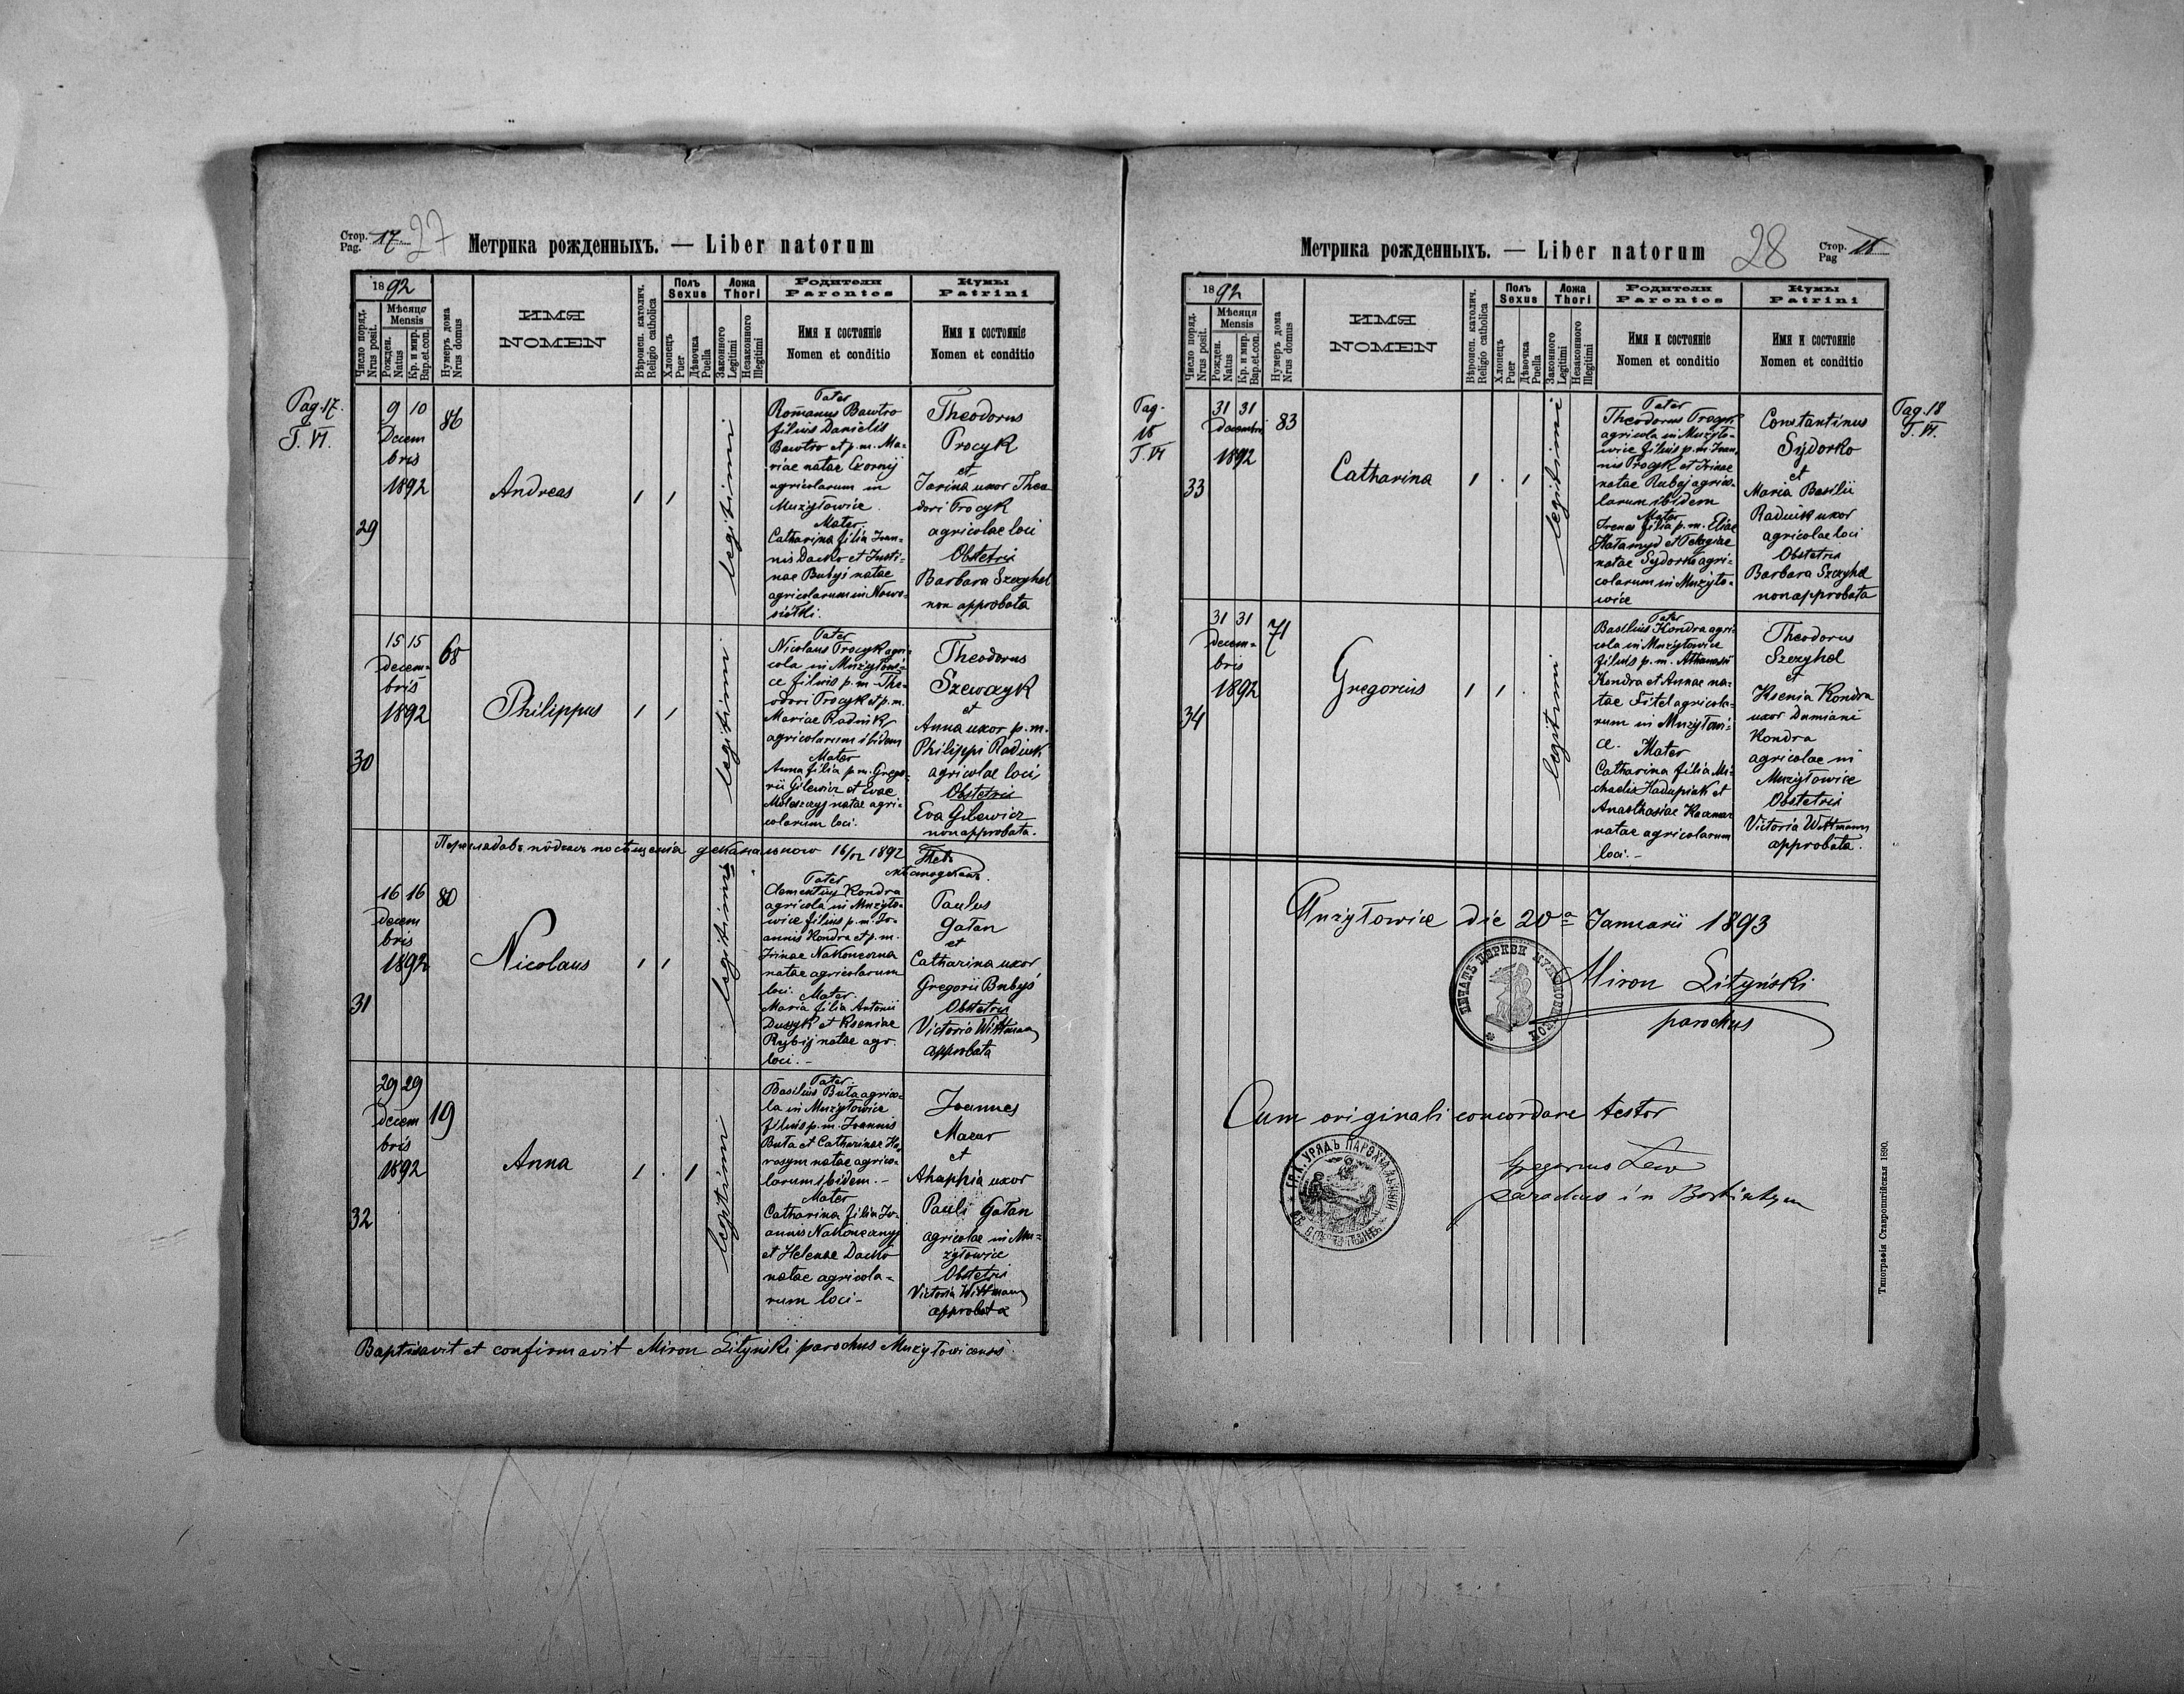 Стор. Pag. 17 27
Метрика рожденныхъ. — Liber natorum
1892
Число поряд. Nrus posit.
Мѣсяця Mensis
Рожден. Natus
Кр. и мир. Bap.et.con.
Нумеръ дома Nrus domus
ИМЯ
NOMEN
Вѣроисп. католич. Religio catholica
Полъ Sexus
Хлопець Puer
Дѣвочка Puella
Ложа Thori
Законного Legitimi
Незаконного Illegitimi
Родители Parentes
Имя и состояніе
Nomen et conditio
Кумы Patrini
Имя и состояніе
Nomen et conditio
Pag. 17.
T. VI.
29
9 10
Decem
bris
1892
86
Andreas
legitimi
Pater
Romanus Bawtro
filius Danielis
Bawtro et p. m. Ma-
riae natae Czornij
agricolarum in
Mużyłowice.
Mater
Catharina filia Ioan-
nis Dacko et Justi-
nae Bubyś natae
agricolarum in Nowo-
siółki.
Theodorus
Procyk
et
Jarina uxor Theo
dori Trocyk
agricolae loci
Obstetrix
Barbara Szczyhel
non approbata
30
15 15
decem-
bris
1892
68
Philippus
legitimi
Pater
Nicolaus Trocyk agri-
cola in Mużyłowi-
ce filius p. m. The-
odori Trocyk et p. m.
Mariae Radiuk
agricolarum ibidem
Mater
Anna filia p. m. Grego-
rii Gilewicz et Evae
natae agri-
colarum loci.
Theodorus
Szewczyk
et
Anna uxor p. m.
Philippi Radiuk
agricolae loci
Obstetrix
Eva Gilewicz
non approbata.
16/12 1892
31
16 16
decem
bris
1892
80
Nicolaus
legitimi
Pater
Clementius Kondra
agricola in Mużyło-
wice filius p. m. Jo-
annis Kondra et p. m.
Irinae Nakoneczna
natae agricolarum
loci. Mater
Maria filia Antonii
Duszyk et Kseniae
Rybij natae agr.
loci. -
Paulus
Gałan
et
Catharina uxor
Gregorii Bubyś
Obstetrix
Victoria Wittmann
approbata
32
29 29
decem
bris
1892
19
Anna
legitimi
Pater
Basilius Buta agrico-
la in Mużyłowice
filius p. m. Joannis
Buta et Catharinae Ha-
rasym natae agrico-
larum ibidem. -
Mater
Catharina filia Jo-
annis Nakonecznyj
et Helenae Dacko
natae agricola-
rum loci -
Joannes
Mazur
et
Ahaphia uxor
Pauli Gałan
agricolae in Mu-
żyłowice
Obstetrix
Victoria Wittmann
approbata
Baptisavit et confirmavit Miron Lityński parochus Mużyłowicensis.
Метрика рожденныхъ. — Liber natorum
28 Стор. Pag 18
1892
Число поряд. Nrus posit.
Мѣсяця Mensis
Рожден. Natus
Кр. и мир. Bap.et.con.
Нумеръ дома Nrus domus
ИМЯ
NOMEN
Вѣроисп. католич. Religio catholica
Полъ Sexus
Хлопець Puer
Дѣвочка Puella
Ложа Thori
Законного Legitimi
Незаконного Illegitimi
Родители Parentes
Имя и состояніе
Nomen et conditio
Кумы Patrini
Имя и состояніе
Nomen et conditio
Pag.
18
T. VI
Pag. 18
T. VI.
33
31 31
decembris
1892
83
Catharina
legitimi
Pater
Theodorus Trocyk
agricola in Mużyło-
wice filius p. m. Joan-
nis Trocyk et Irinae
natae Rubaj agrico-
larum ibidem
Mater
Irena filia p. m. Eliae
Hałamyd et Pelagiae
natae Sydorko agri-
colarum in Mużyło-
wice
Constantinus
Sydorko
et
Maria Basilii
Radiuk uxor
agricolae loci
Obstetrix
Barbara Szczyhel
non approbata
34
31 31
decem-
bris
1892
71
Gregorius
legitimi
Pater
Basilius Kondra agri-
cola in Mużyłowice
filius p. m. Athanasii
Kondra et Annae na-
tae Fitel agricola-
rum in Mużyłowi-
ce. Mater
Catharina filia Mi-
chaelis Hadupiak et
Anasthasiae Kaczmar
natae agricolarum
loci. -
Theodorus
Szczyhel
et
Ksenia Kondra
uxor Damiani
Kondra
agricolae in
Mużyłowice
Obstetrix
Victoria Wittmann
approbata.
Mużyłowice die 20ª Januarii 1893
Miron Lityński
parochus
ПЕЧАТЬ ЦЕРКВИ
Cum originali concordare testor
Gregorius Lew
parochus in
УРЯДЪ ПАРОХІАЛЬНЫЙ
Типографія Ставропигійская 1890.